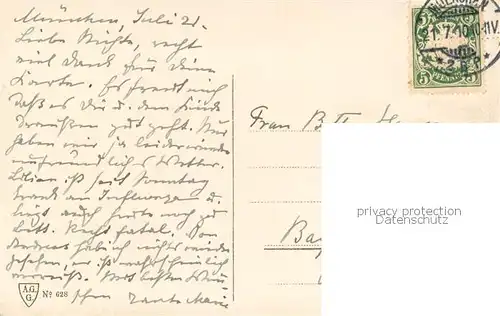 München, Juli 21.
Liebe Nichte, recht
viel Dank für deine
Karte. Es freut mich
daß es dir u. dem Kind
draußen gut geht. Nur
haben wir ja leider wieder
unfreundliches Wetter.
Lilian ist seit Sonntag
krank an Influenza u.
liegt auch heute noch zu
Bett. Recht fatal. Von
Andreas hab ich nichts wieder
gesehen, er ist wahrscheinlich
verreist. Mit besten Wün
schen Tante Marie
A.G.
G.
No 628
MÜNCHEN
21.7.10.10-11V.
* 2 B *
5 PFENNIG 5
Frau B.
privacy protection
DATENSCHUTZ